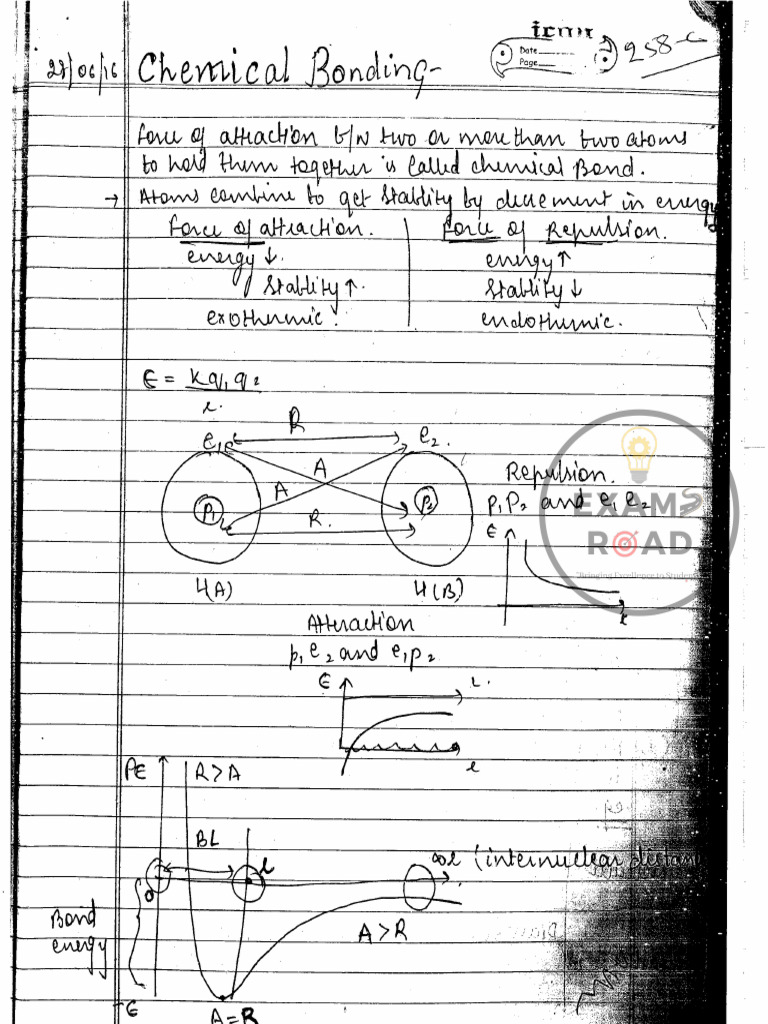 Date
Page
258-C
28/06/16 Chemical Bonding-
Force of attraction b/w two or more than two atoms
to hold them together is called chemical Bond.
→ Atoms combine to get stablity by decrement in energy
Force of attraction. Force of Repulsion.
energy↓. energy↑
stablity↑. stablity↓
exothermic. endothermic.
E = Kq₁q₂
r.
R
e₁ e₂.
A
A
P₁ P₂
R.
Repulsion.
P₁P₂ and e₁e₂
E
r
EXAMS
ROAD
"Bringing Excellence to Students"
H(A) H(B)
Attraction
P₁e₂ and e₁P₂
E r.
r
PE R>A
BL
∞r (internuclear distan
0
Bond
energy
A>R
-E
A=R